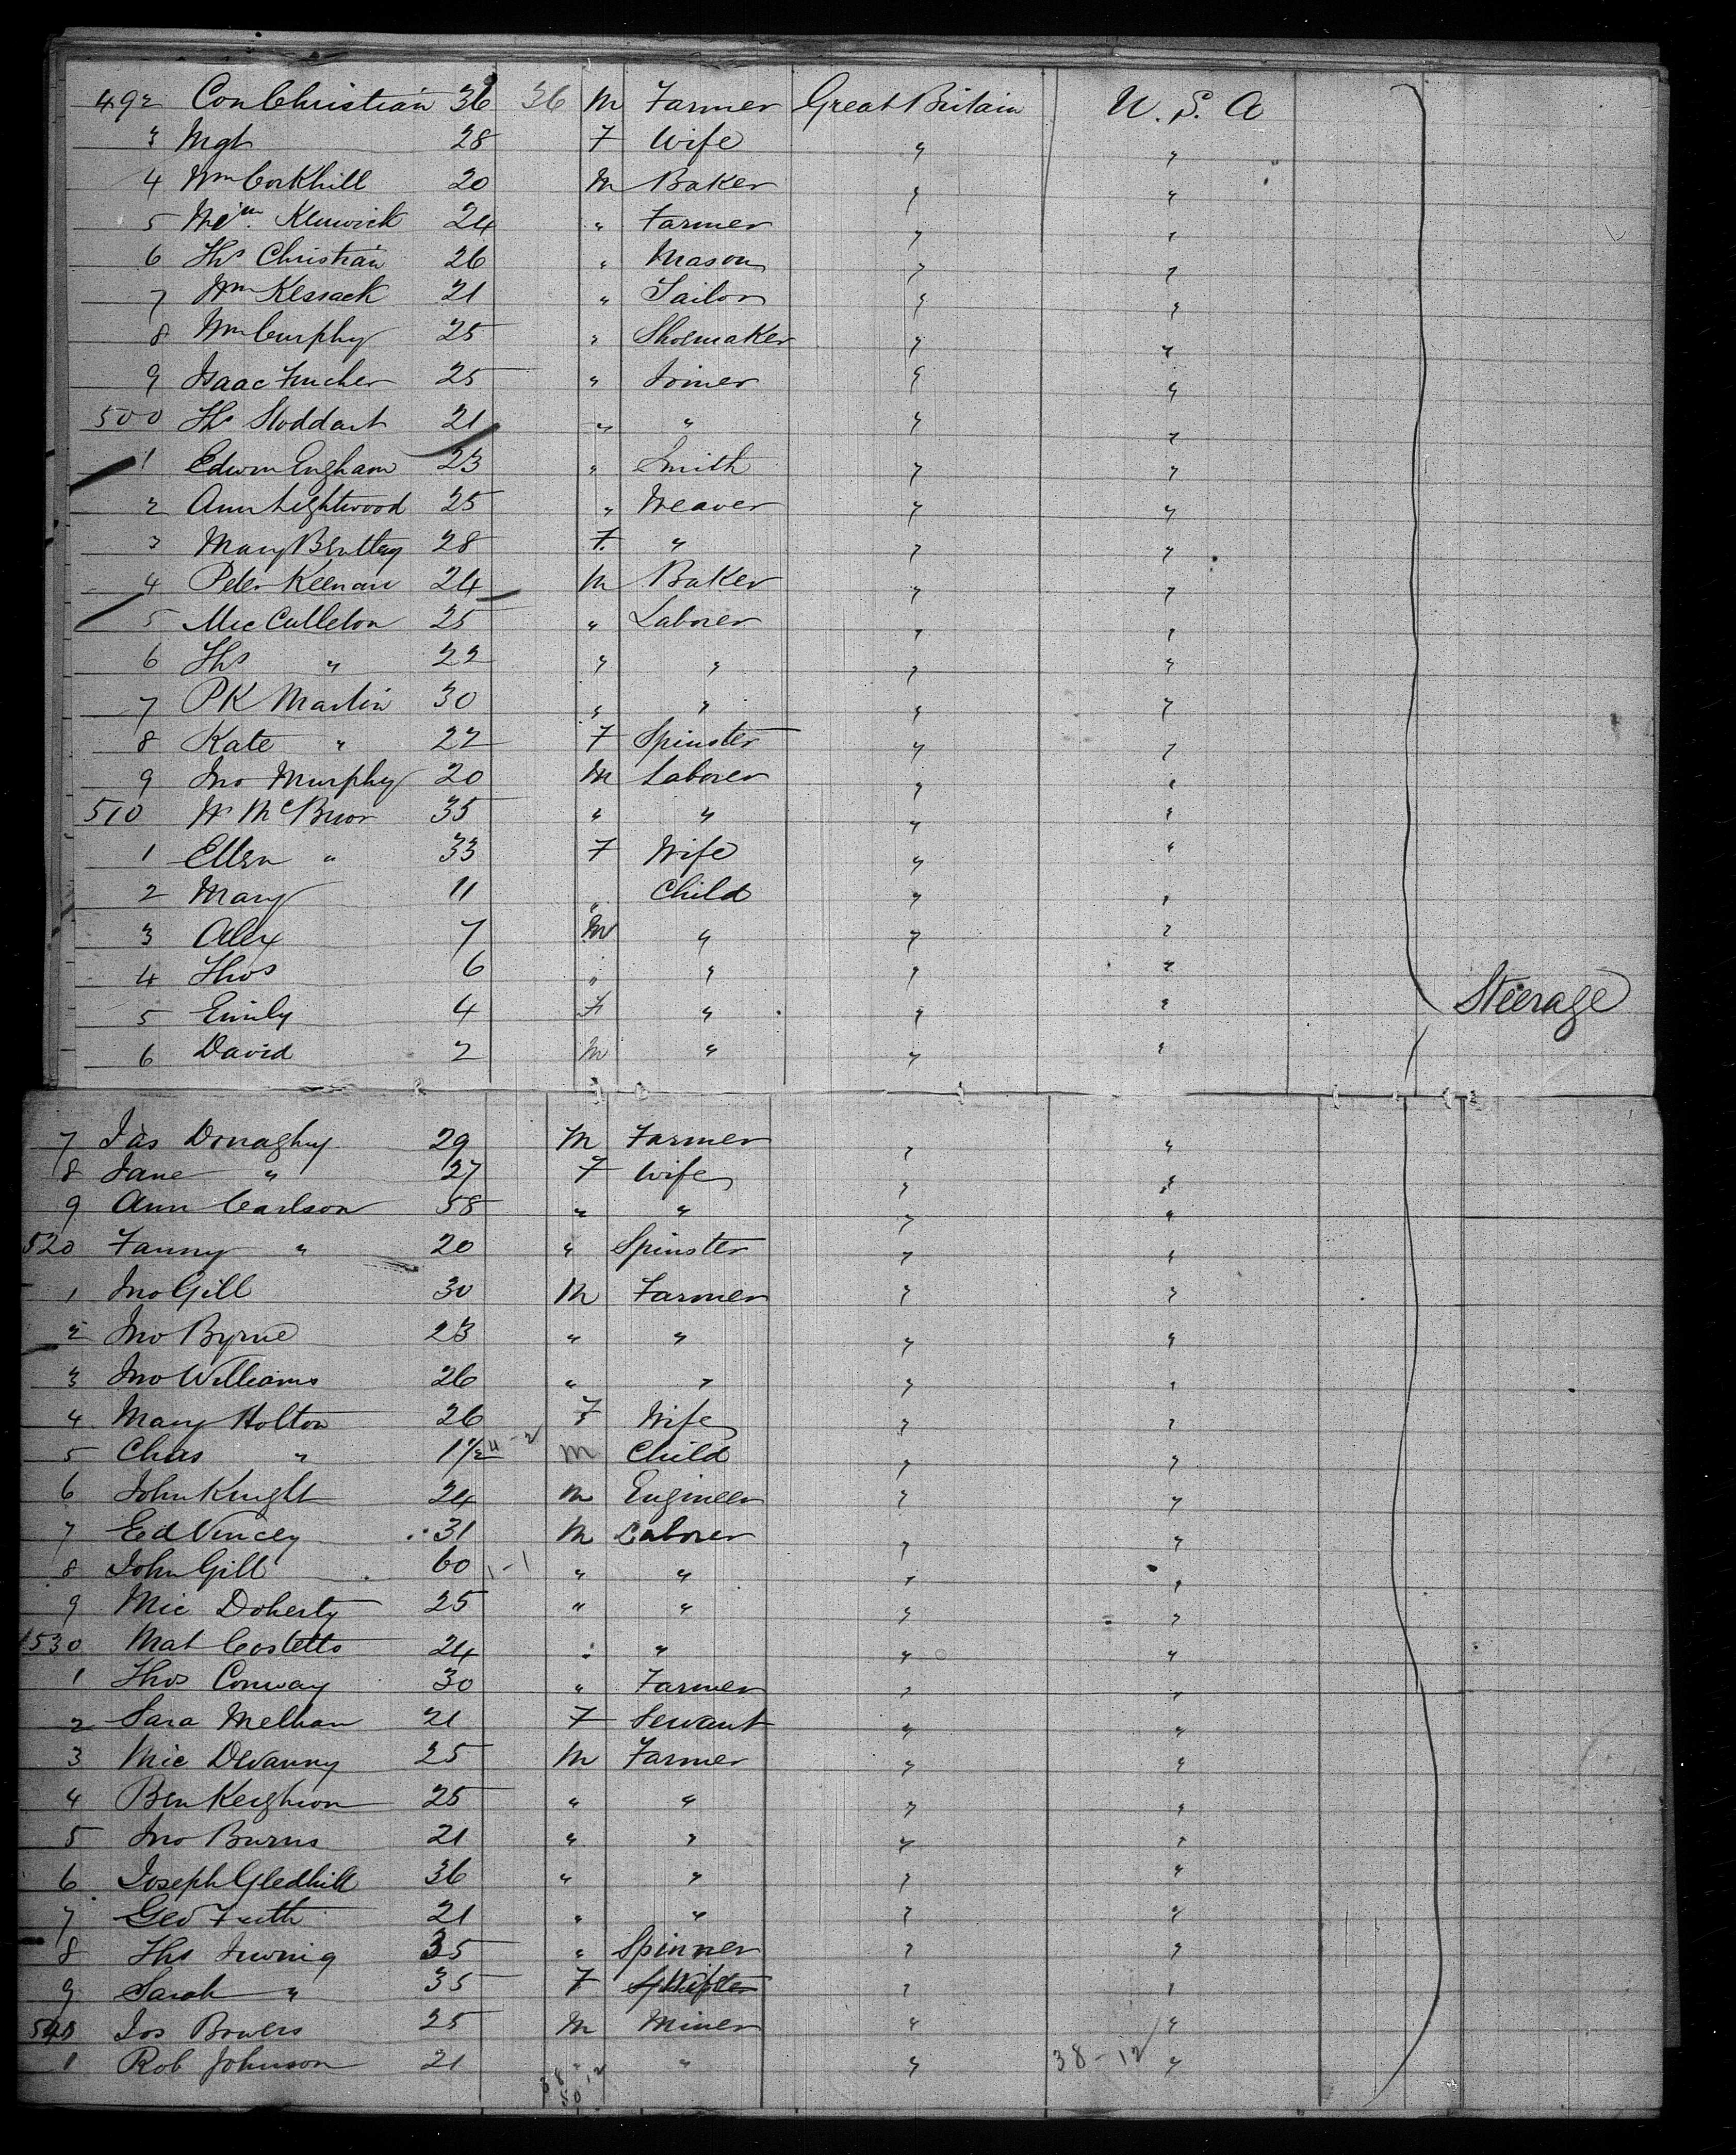 492 Con Christian 36 36 M Farmer Great Britain U. S. A
3 Mgt 28 F Wife " "
4 Wm Corkhill 20 M Baker " "
5 Kewick 24 " Farmer " "
6 Ths Christian 26 " Mason " "
7 Wm Kessack 21 " Tailor " "
8 Wm Curphy 25 " Shoemaker " "
9 Isaac 25 " Joiner " "
500 Ths Stoddart 21 " " " "
1 Edwin Engham 23 " Smith " "
2 Ann Lightwood 25 " Weaver " "
3 Mary Bentley 28 F. " " "
4 Peter Keenan 24 M Baker " "
5 Mic Culleton 25 " Laborer " "
6 Ths " 22 " " " "
7 PK Martin 30 " " " "
8 Kate " 22 F Spinster " "
9 Jno Murphy 20 M Laborer " "
510 35 " " " "
1 Ellen " 33 F Wife " "
2 Mary 11 " Child " "
3 Alex 7 M " " "
4 Thos 6 " " " "
5 Emily 4 F " " " Steerage
6 David 2 M " " "
7 Jas Donaghy 29 M Farmer " "
8 Jane " 27 F Wife " "
9 Ann Carlson 58 " " " "
520 Fanny " 20 " Spinster " "
1 Jno Gill 30 M Farmer " "
2 Jno Byrne 23 " " " "
3 Jno Williams 26 " " " "
4 Mary Holton 26 F Wife " "
5 Chas " 1 1/2 4-2 M Child " "
6 John Knight 24 M Engineer " "
7 Ed Vincey 31 M Laborer " "
8 John Gill 60 1-1 " " " "
9 Mic Doherty 25 " " " "
530 Mat Costello 24 " " " "
1 Thos Conway 30 " Farmer " "
2 Sara Melhan 21 F Servant " "
3 Mic Devanny 25 M Farmer " "
4 Ben Keighron 25 " " " "
5 Jno Burns 21 " " " "
6 Joseph Gledhill 36 " " " "
7 Geo Firth 21 " " " "
8 Ths 35 " Spinner " "
9 Sarah " 35 F Wife " "
540 Jos Bowers 25 M Miner " "
1 Rob Johnson 21 " " " 38-12 "
38 12
50